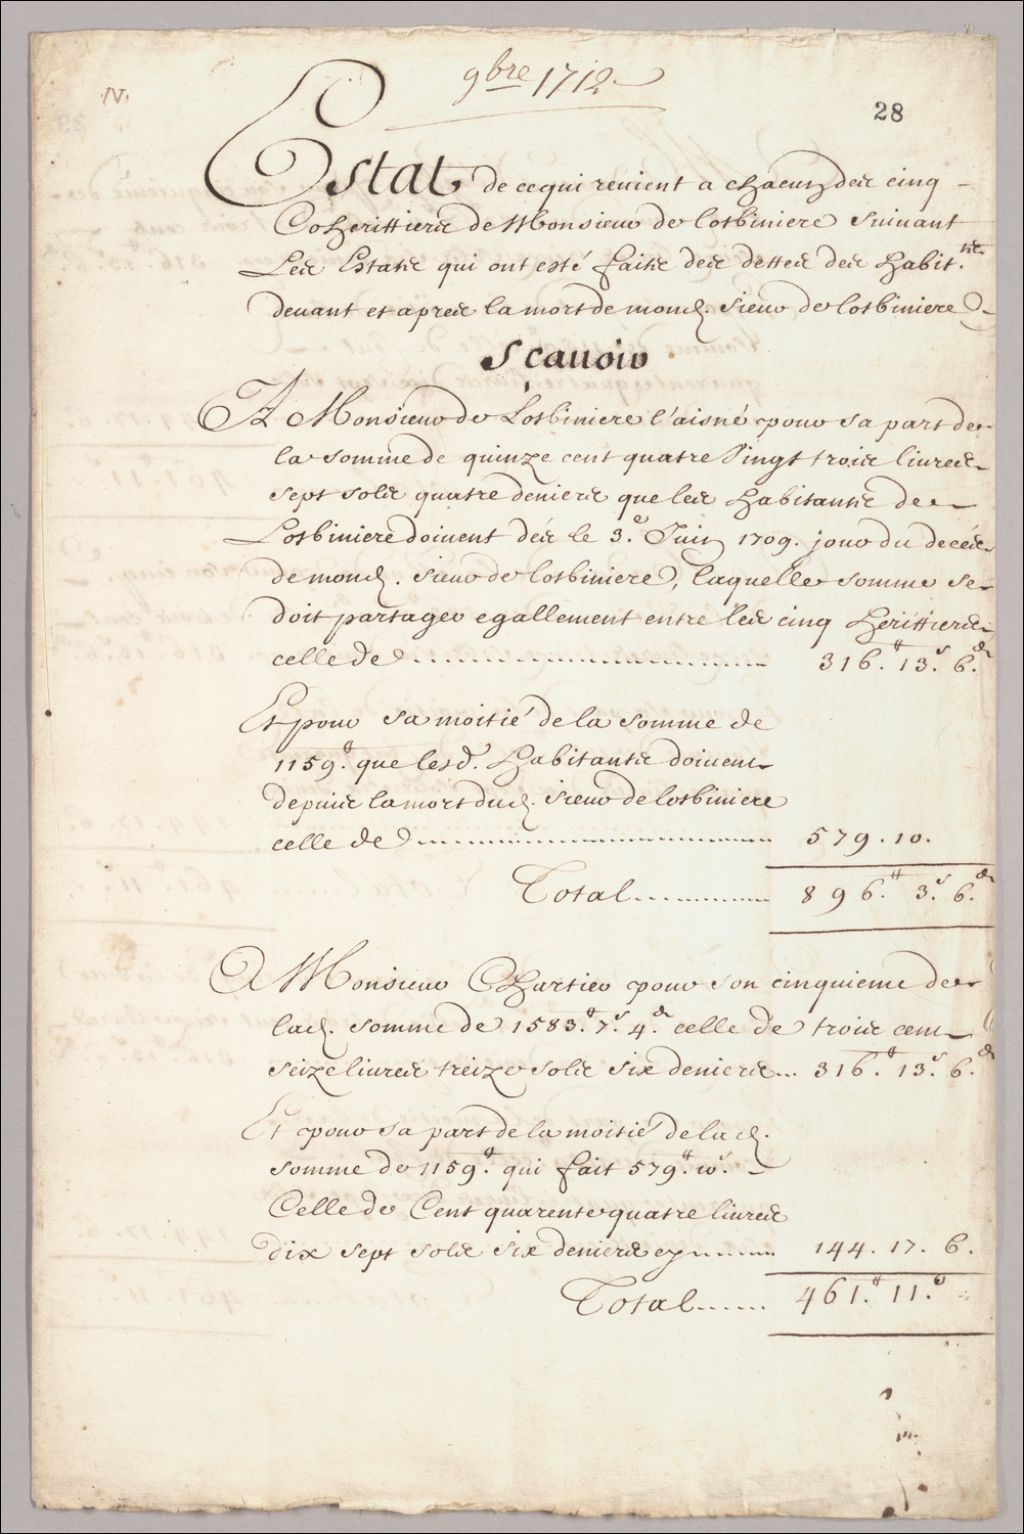 9bre 1712
IV.
28
Estat de ce qui reuient a chacun des cinq
Coheritiers de Monsieur de Lotbiniere suiuant
Les Estats qui ont esté faits des dettes des habit.ts
deuant et apres la mort de mond. sieur de Lotbiniere
Scauoir
A Monsieur de Lotbiniere l'aisné pour sa part de
la somme de quinze cent quatre vingt trois liures
sept sols quatre deniers que les habitants de
Lotbiniere doiuent dés le 3.e Juin 1709. jour du decés
de mond. sieur de Lotbiniere, laquelle somme se
doit partager egallement entre les cinq heritiers
celle de ........ 316.tt 13.s 6.d
Et pour sa moitié de la somme de
1159.tt que lesd. habitants doiuent
depuis la mort dud. sieur de Lotbiniere
celle de ........ 579. 10.
Total ........ 896.tt 3.s 6.d
A Monsieur Chartier pour son cinquieme de
lad. somme de 1583.tt 7.s 4.d celle de trois cent
seize liures treize sols six deniers... 316.tt 13.s 6.d
Et pour sa part de la moitié de lad.
somme de 1159.tt qui fait 579.tt 10.s
Celle de Cent quarente quatre liures
dix sept sols six deniers cy ........ 144. 17. 6.
Total ...... 461.tt 11.s